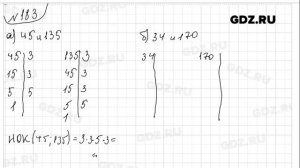 GDZ.RU
№183
а) 45 и 135 б) 34 и 170
45 3 135 3 34 170
15 3 45 3
5 5 15 3
1 5 5
1
НОК (45; 135) = 3·3·5·3 =
GDZ.RU